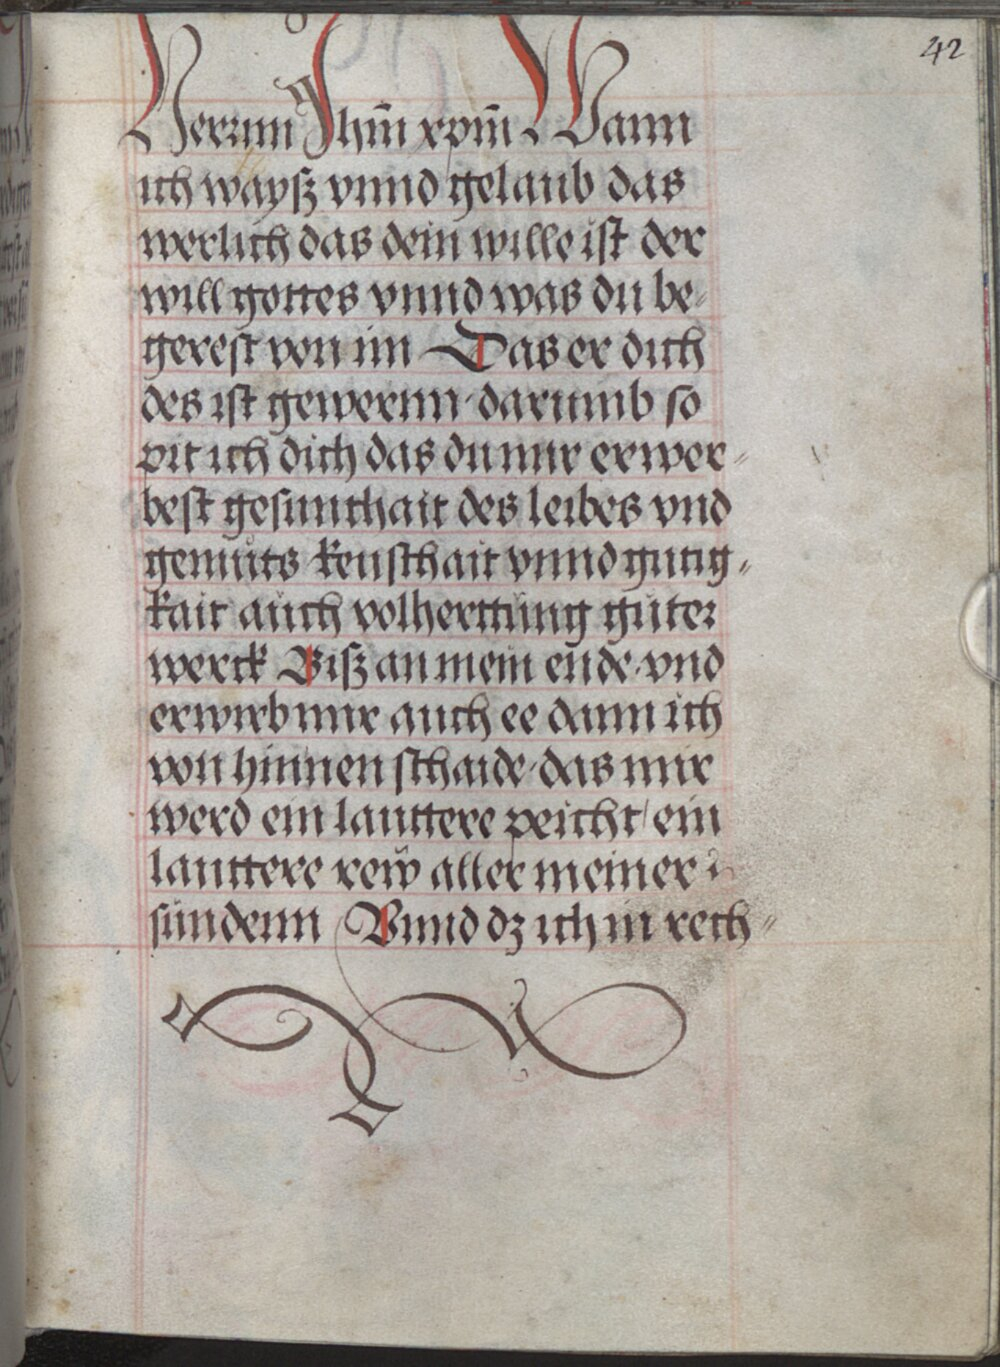 42
Herrnn Jhm̄ xpm̄ Wann
ich wayß vnnd gelaub das
werlich das dein wille ist der
will gottes vnnd was du be-
gerest von im Das er dich
des ist gewernn · darumb so
pit ich dich das du mir erwer-
best gesunthait des leibes vnd
gemüts keuschait vnnd gutig-
kait auch volherttung guter
werck Biß an mein ende · vnd
erwirb mir auch ee dann ich
von hinnen schaide · das mir
werd ein lauttere peicht / ein
lauttere rew aller meiner
sündenn Vnnd dz ich in rech-